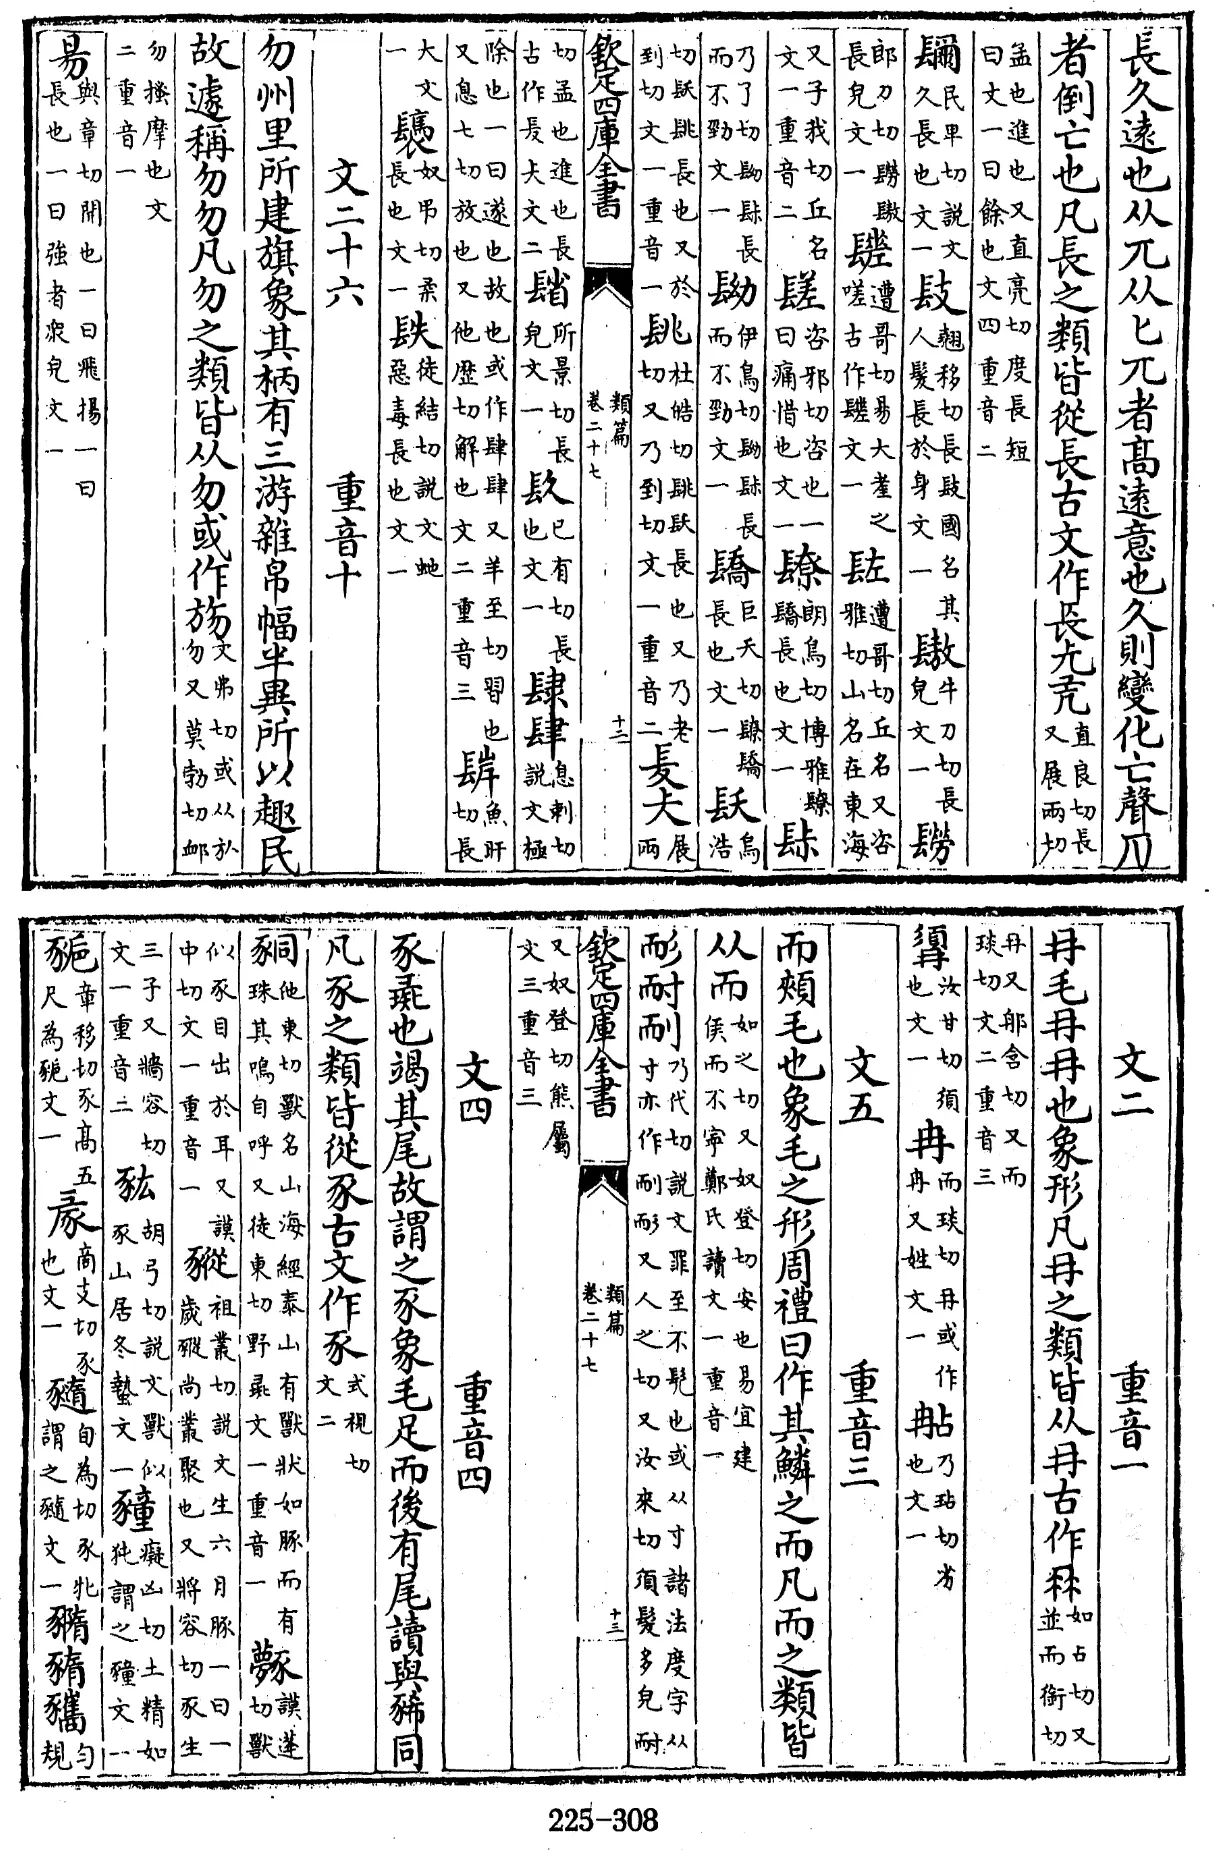 長久遠也从兀从匕兀者高遠意也久則變化亡聲
者倒亡也凡長之類皆從長古文作 直良切長又展兩切
孟也進也又直亮切度長短曰文一曰餘也文四重音二
镾民卑切說文久長也文一 翹移切長 國名其人髮長於身文一 牛刀切長皃文一
郎刀切 長皃文一 遭哥切易大耋之嗟古作 文一 遭哥切丘名又咨雅切山名在東海
又子我切丘名文一重音二 咨邪切咨也一曰痛惜也文一 朗鳥切博雅 長也文一
乃了切 長而不勁文一 伊鳥切 長而不勁文一 巨夭切 長也文一 烏浩
切 長也又於到切文一重音一 杜皓切 長也又乃老切又乃到切文一重音二 展兩
欽定四庫全書 類篇 卷二十七 十二
切孟也進也長古作 文二 所景切長皃文一 已有切長也文一 肆 息利切說文極
除也一曰遂也故也或作肆肆又羊至切習也又息七切放也又他歴切解也文二重音三 魚旰切長
大文一 奴弔切柔長也文一 镻徒結切說文虵惡毒長也文一
文二十六 重音十
勿州里所建旗象其柄有三游雜帛幅半異所以趣民
故遽稱勿勿凡勿之類皆从勿或作㫃文弗切或从㫃勿又莫勃切卹
勿搔摩也文二重音一
昜與章切開也一曰飛揚一曰長也一曰強者衆皃文一
文二 重音一
冄毛冄冄也象形凡冄之類皆从冄古作 如占切又並而銜切
冄又那含切又而琰切文二重音三
汝甘切須也文一 冉而琰切冄或作冉又姓文一 乃玷切 也文一
文五 重音三
而頰毛也象毛之形周禮曰作其鱗之而凡而之類皆
从而如之切又奴登切安也易宜建侯而不寧鄭氏讀文一重音一
耏耐耐乃代切說文罪至不髡也或从寸諸法度字从寸亦作耐耏又人之切又汝來切須髮多皃耐
欽定四庫全書 類篇 卷二十七 十三
又奴登切熊屬文三重音三
文四 重音四
豕彘也竭其尾故謂之豕象毛足而後有尾讀與豨同
凡豕之類皆從豕古文作豕式視切文二
㹣他東切獸名山海經泰山有獸狀如豚而有珠其鳴自呼又徒東切野彘文一重音一 謨蓬切獸
似豕目出於耳又謨中切文一重音一 豵祖叢切說文生六月豚一曰一歲豵尚叢聚也又將容切豕生
三子又牆容切文一重音二 胡弓切說文獸似豕山居冬蟄文一 癡凶切土精如㹠謂之 文一
章移切豕高五尺為豟文一 商支切豕也文一 旬為切豕牝謂之 文一 勻規
225-308